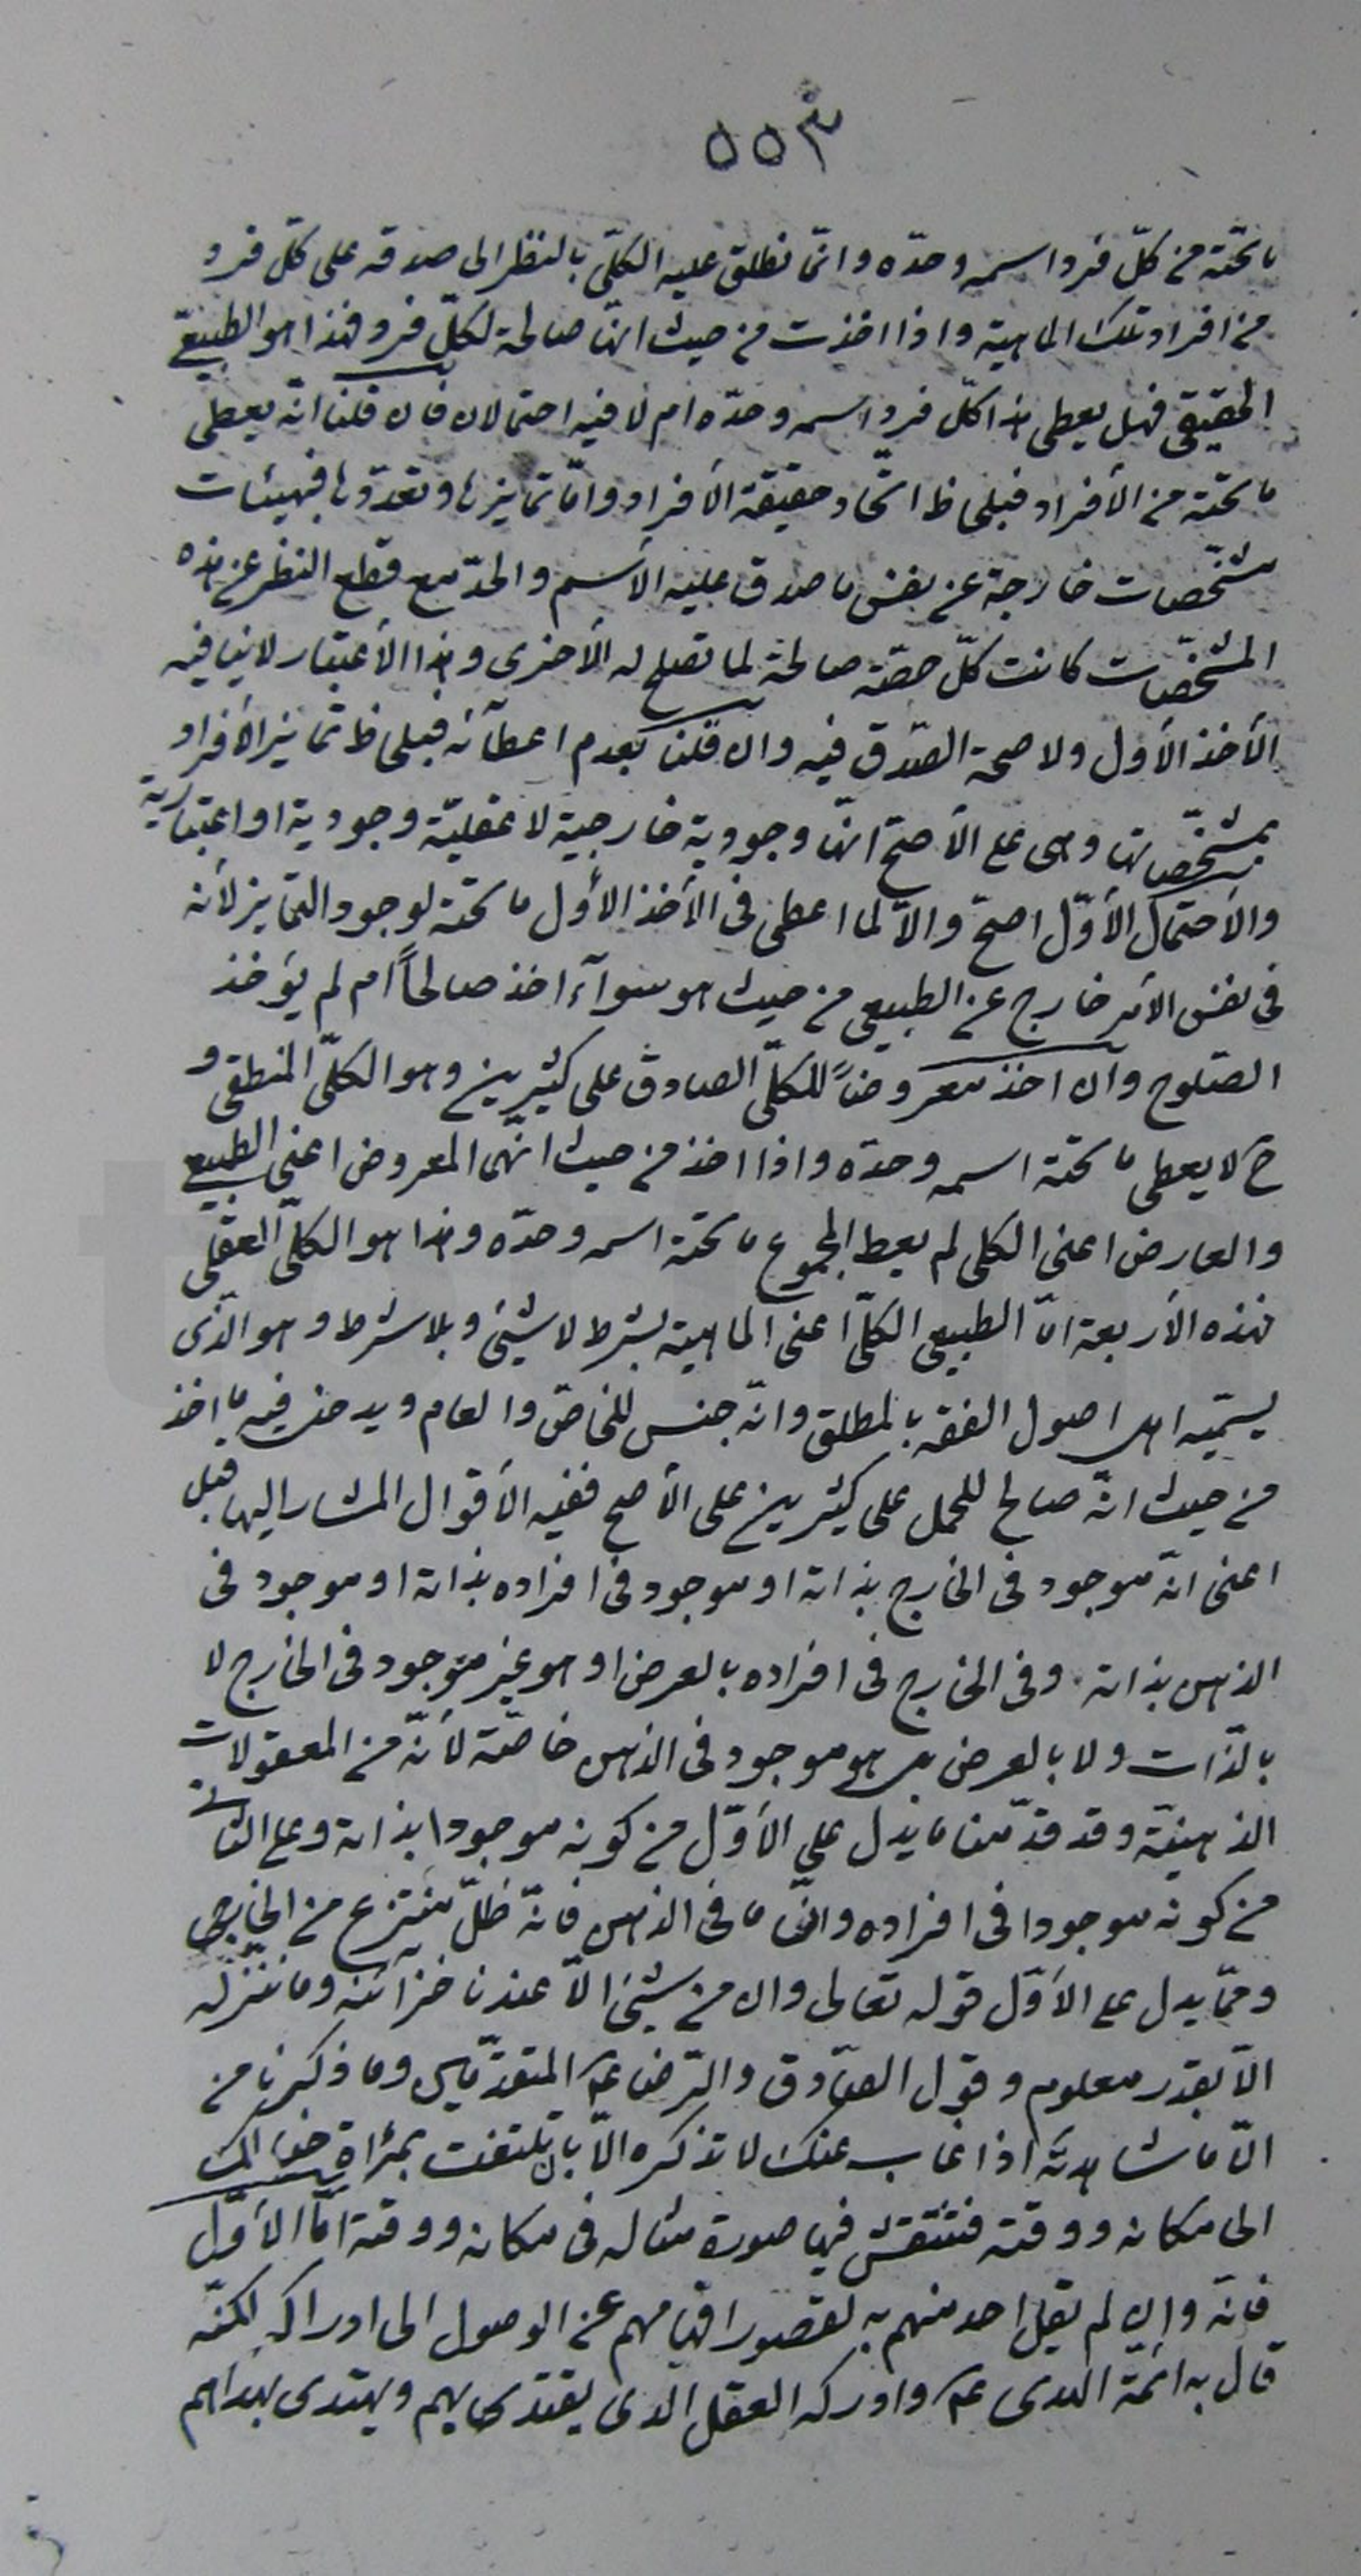 ٥٥٣
ما تحته من كلّ فرد اسمه وحدّه وانّما نطلق عليه الكلّى بالنظر الى صدقه على كلّ فرد
من افراد تلك الماهية واذا اخذت من حيث انها صالحة لكلّ فرد فهذا هو الطبيعىّ
الحقيقى فهل يعطى هذا كلّ فرد اسمه وحدّه ام لا فيه احتمالان فان قلنا انّه يعطى
ما تحته من الأفراد فبلحاظ اتّحاد حقيقة الأفراد وامّا تمايزها وتعدّدها فبهيئات
مشخّصات خارجة عن نفس ما صدق عليه الأسم والحدّ مع قطع النظر عن هذه
المشخّصات كانت كلّ حصّة صالحة لما تصلح له الأخرى وهذا الأعتبار لاينافيه
الأخذ الأول ولا صحة الصّدق فيه وان قلنا بعدم اعطآئه فبلحاظ تمايز الأفراد
بمشخّصاتها وهى على الأصحّ انّها وجودية خارجية لا عقليّة وجودية او اعتبارية
والأحتمال الأوّل اصحّ والاّ لما اعطى فى الأخذ الأول ما تحته لوجود التمايز لأنه
فى نفس الأمر خارج عن الطبيعى من حيث هو سوآء اخذ صالحاً ام لم يؤخذ
الصّلوح وان اخذ معروضاً للكلّى الصادق على كثيرين وهو الكلّى المنطقى و
ح لا يعطى ما تحته اسمه وحدّه واذا اخذ من حيث انّهما المعروض اعنى الطبيعى
والعارض اعنى الكلى لم يعط المجموع ما تحته اسمه وحدّه وهذا هو الكلّى العقلى
فهذه الأربعة امّا الطبيعى الكلّى اعنى الماهية بشرط لا شيئ وبلا شرط وهو الّذى
يسمّيه اهل اصول الفقه بالمطلق وانّه جنس للخاصّ والعام ويدخل فيه ما اخذ
من حيث انّه صالح للحمل على كثيرين على الأصح ففيه الأقوال المشار اليها قبل
اعنى انّه موجود فى الخارج بذاته او موجود فى افراده بذاته او موجود فى
الذهن بذاته وفى الخارج فى افراده بالعرض او هو غير موجود فى الخارج لا
بالذّات ولا بالعرض بل هو موجود فى الذهن خاصّة لأنّه من المعقولات
الذهنيّة وقد قدّمنا ما يدل على الأوّل من كونه موجودا بذاته وعلى الثانى
من كونه موجودا فى افراده وانّ ما فى الذهن فانّه ظلّ منتزع من الخارجى
وممّا يدل على الأوّل قوله تعالى وان من شيئ الاّ عندنا خزآئنه وما ننزّله
الاّ بقدر معلوم وقول الصّادق والرّضا عم المتقدّمين وما ذكرنا من
انّ ما شاهدته اذا غاب عنك لا تذكره الاّ بان تلتفت بمرأة خيالك
الى مكانه ووقته فتنتقش فيها صورة مثاله فى مكانه ووقته امّا الأوّل
فانّه وإن لم يقل احد منهم به لقصور افهامهم عن الوصول الى ادراكه لكنّه
قال به ائمّة الهدى عم وادركه العقل الذى يقتدى بهم ويهتدى بهداهم